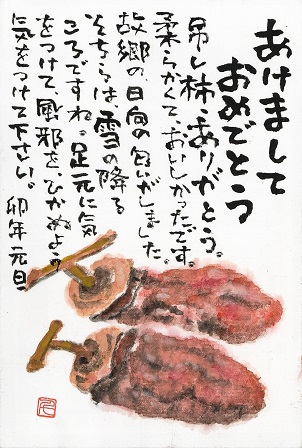 あけまして
おめでとう
吊し柿、ありがとう。
柔らかくて、おいしかったです。
故郷の、日向の匂いがしました。
そちらは、雪の降る
ころですね。足元に気
をつけて、風邪を、ひかぬよう
気をつけて下さい。 卯年 元旦